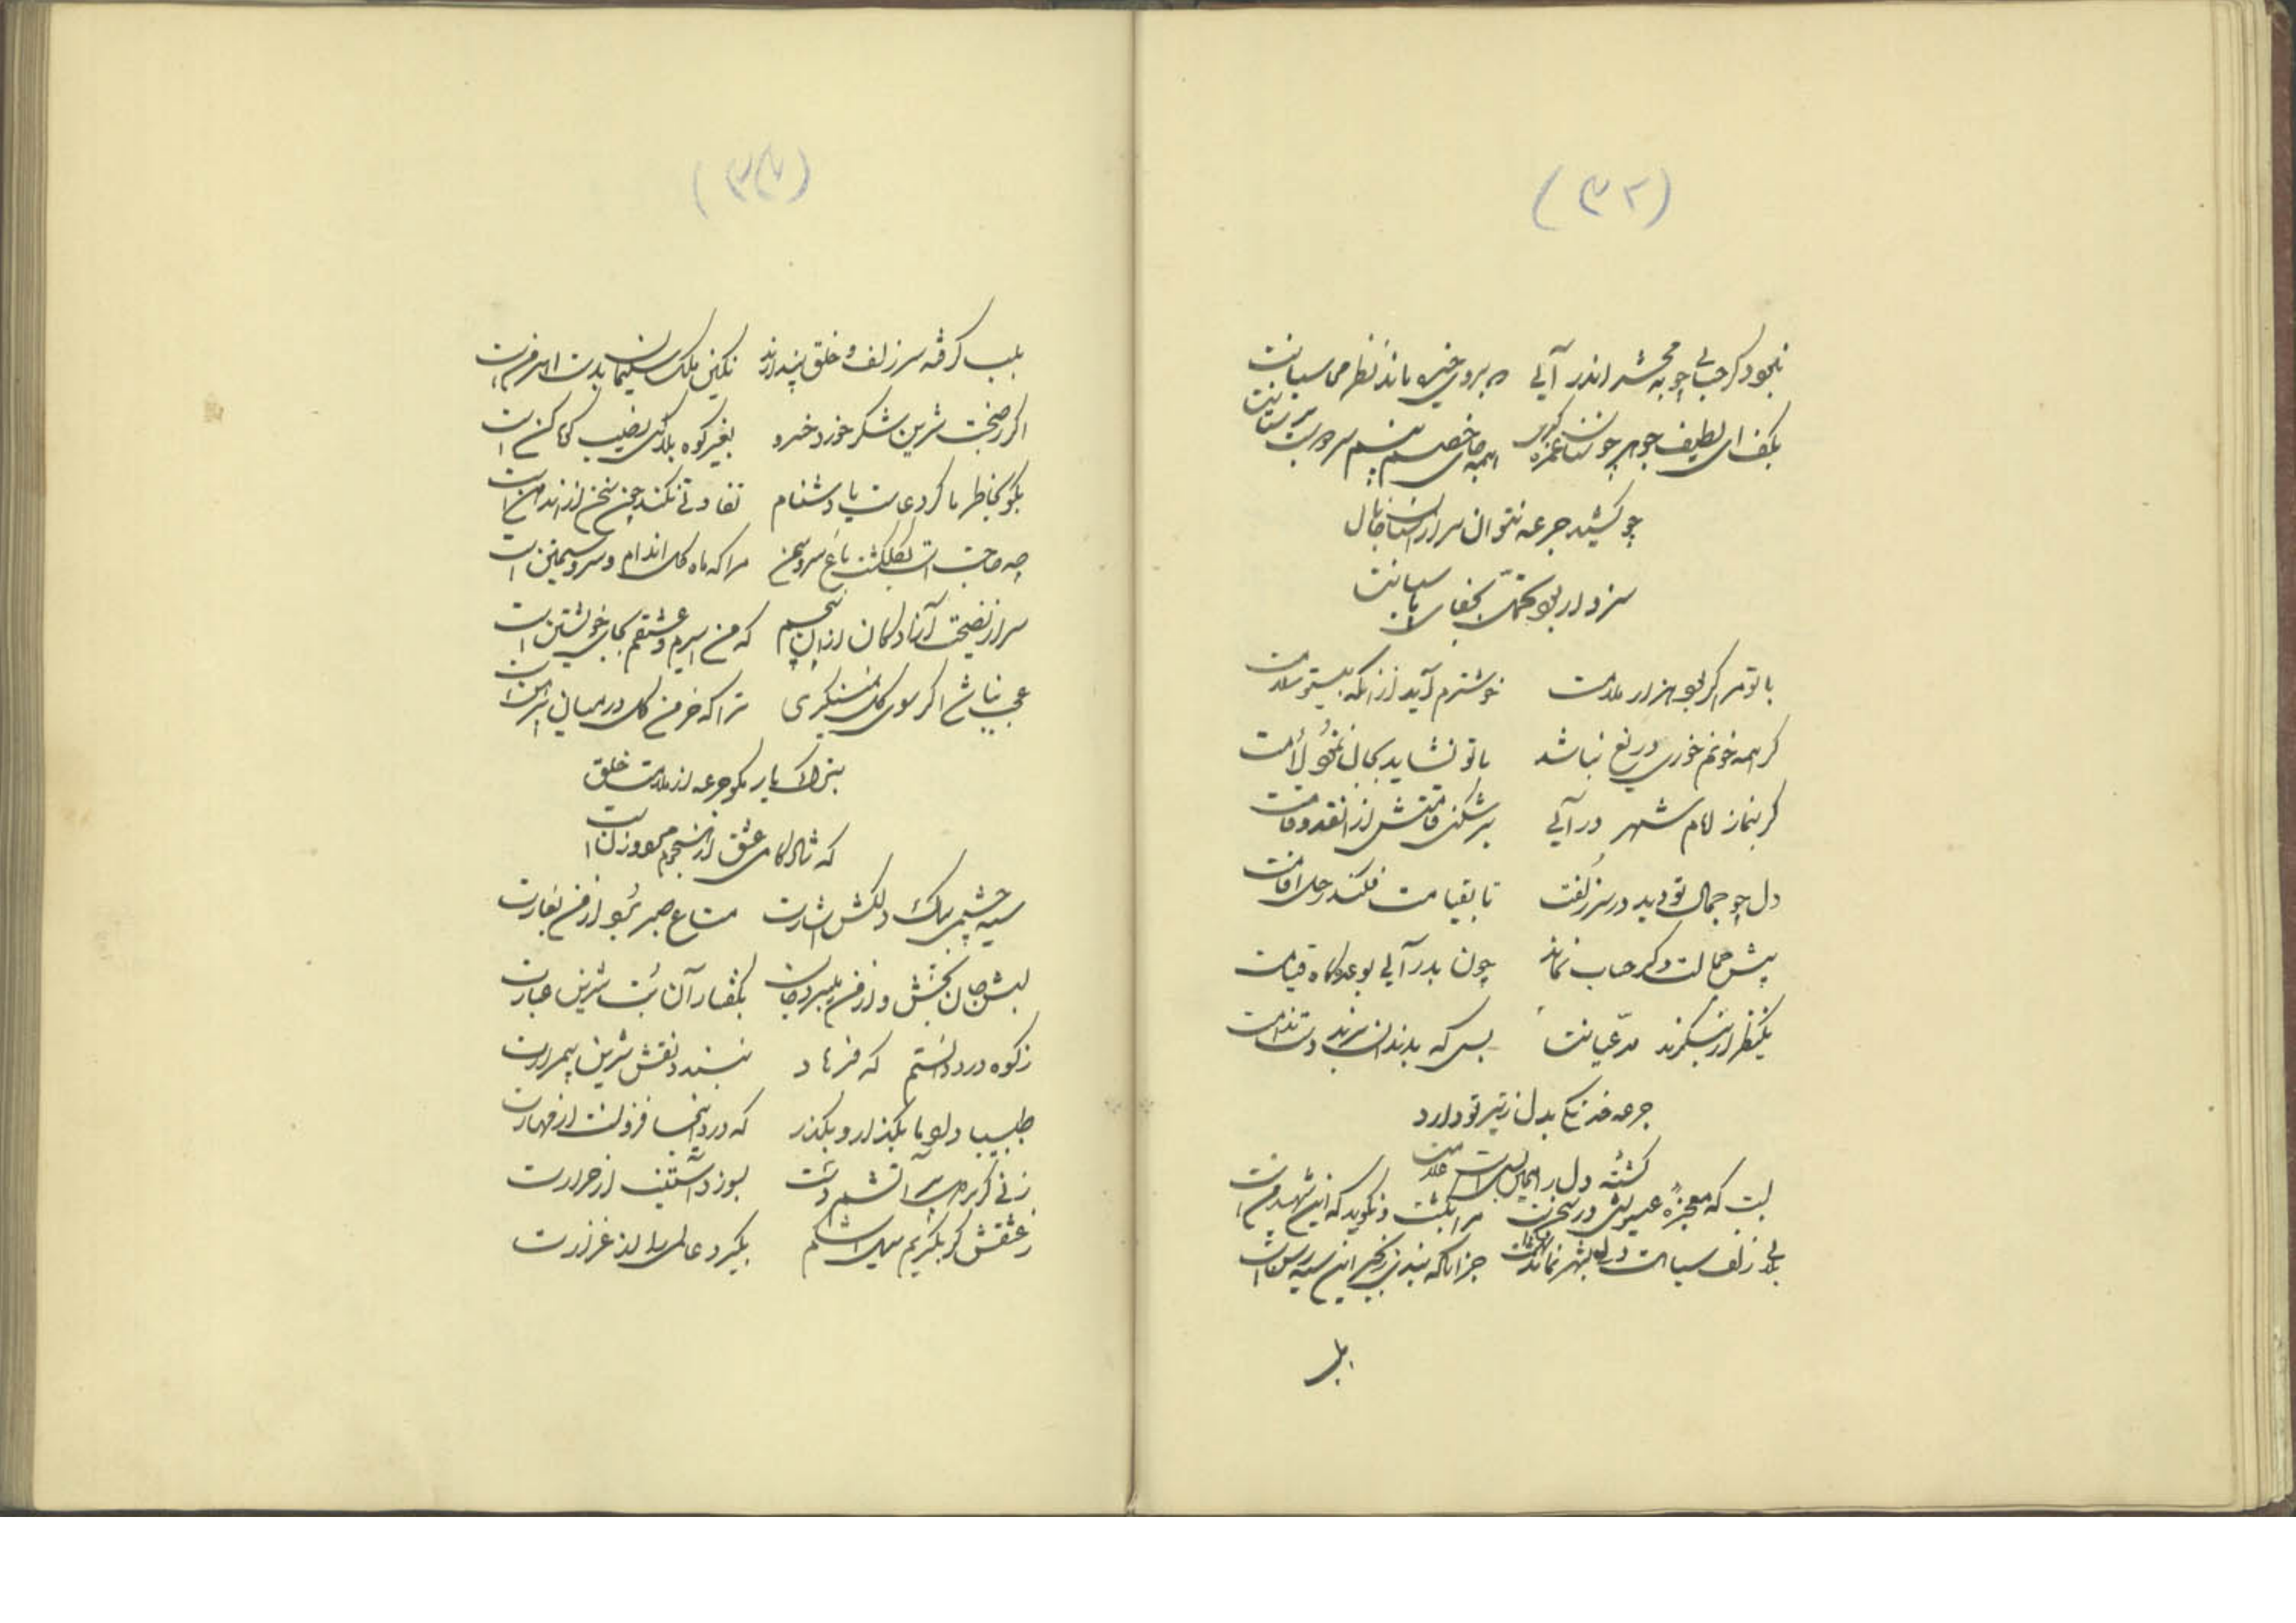 (۳۲)
نبود دگر حسابی چو به محشر اندر آئی همه بروی خیره ماند نظر محاسبانت
بکف ای لطیف جوهر چو سنان غمزه گیری همه جای خصم بینم سر و بر سنانت
چو کشید جرعه نتوان سر از آستان جانان
سزد ار بود تحمل بجفای پاسبانت
با تو مرا گر بود هزار ملامت خوشترم آید از آنکه بیتو سلامت
گر همه خونم خوری دریغ نباشد با تو نشاید بجان نمود لئامت
گر بنماز امام شهر در آئی برشکنی قامتش از آن قد و قامت
دل چو جمال تو دید در سر زلفت تا بقیامت فکند رحل اقامت
پیش جمالت دگر حساب نماند چون بدر آئی بوعده‌گاه قیامت
یکنظر ار بنگرند مدعیانت بس که بدندان برند دست ندامت
جرعه خدنگی بدل ز تیر تو دارد
کشته دل را همین بس است علامت
لبت که معجزه عیسویش در سخن است مرا بکشت و نگوید که این شهید من است
بلای زلف سیاهت دلی بشهر نماند جز آنکه بندی زنجیر این سیه رسن است
بلب
(۳۳)
بلب گرفته سر زلف و خلق پندارند نگین ملک سلیمان بدست اهرمن است
اگر ز صحبت شیرین شکر خورد خسرو بغیر کوه بلا کی نصیب کوهکن است
بگو بخاطر ما گر دعاست یا دشنام تفاوتی نکند چون سخن از آن دهن است
چه حاجت است بگلگشت باغ و سرو و سمن مرا که ماه گل اندام و سرو سیمتن است
سر از نصیحت آزادگان از آن پیچم که من اسیرم و عشقم بجای خویشتن است
عجب نباشد اگر سوی گل نمینگری ترا که خرمن گل در میان پیرهن است
بترک یار مگو جرعه از ملامت خلق
که شادکامی عشق از هجوم مرد و زن است
سیه چشمی بیک دلکش اشارت متاع صبر برد از من بغارت
لبش جان بخش و از من میبرد جان بگفتار آن بت شیرین عبارت
ز کوه درد دانستم که فرهاد نبندد نقش شیرین بیمرارت
طبیبا داو ما بگذار و بگذر که درد اینجا فزونست از مهارت
زنی گر بر سر آتشم دست بسوزد آستینت از حرارت
ز عشقش گر بگریم سیل اشکم بگیرد عالمی را از غزارت